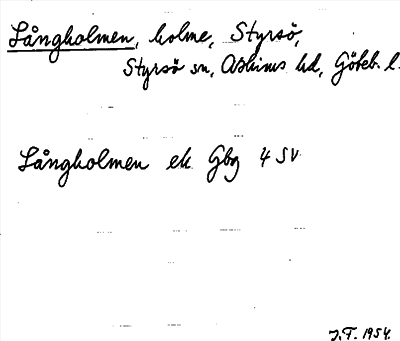 Långholmen, holme, Styrsö,
Styrsö sn, Askims hd, Göteb. l.
Långholmen ek Gbg 4 SV
J.T. 1954.